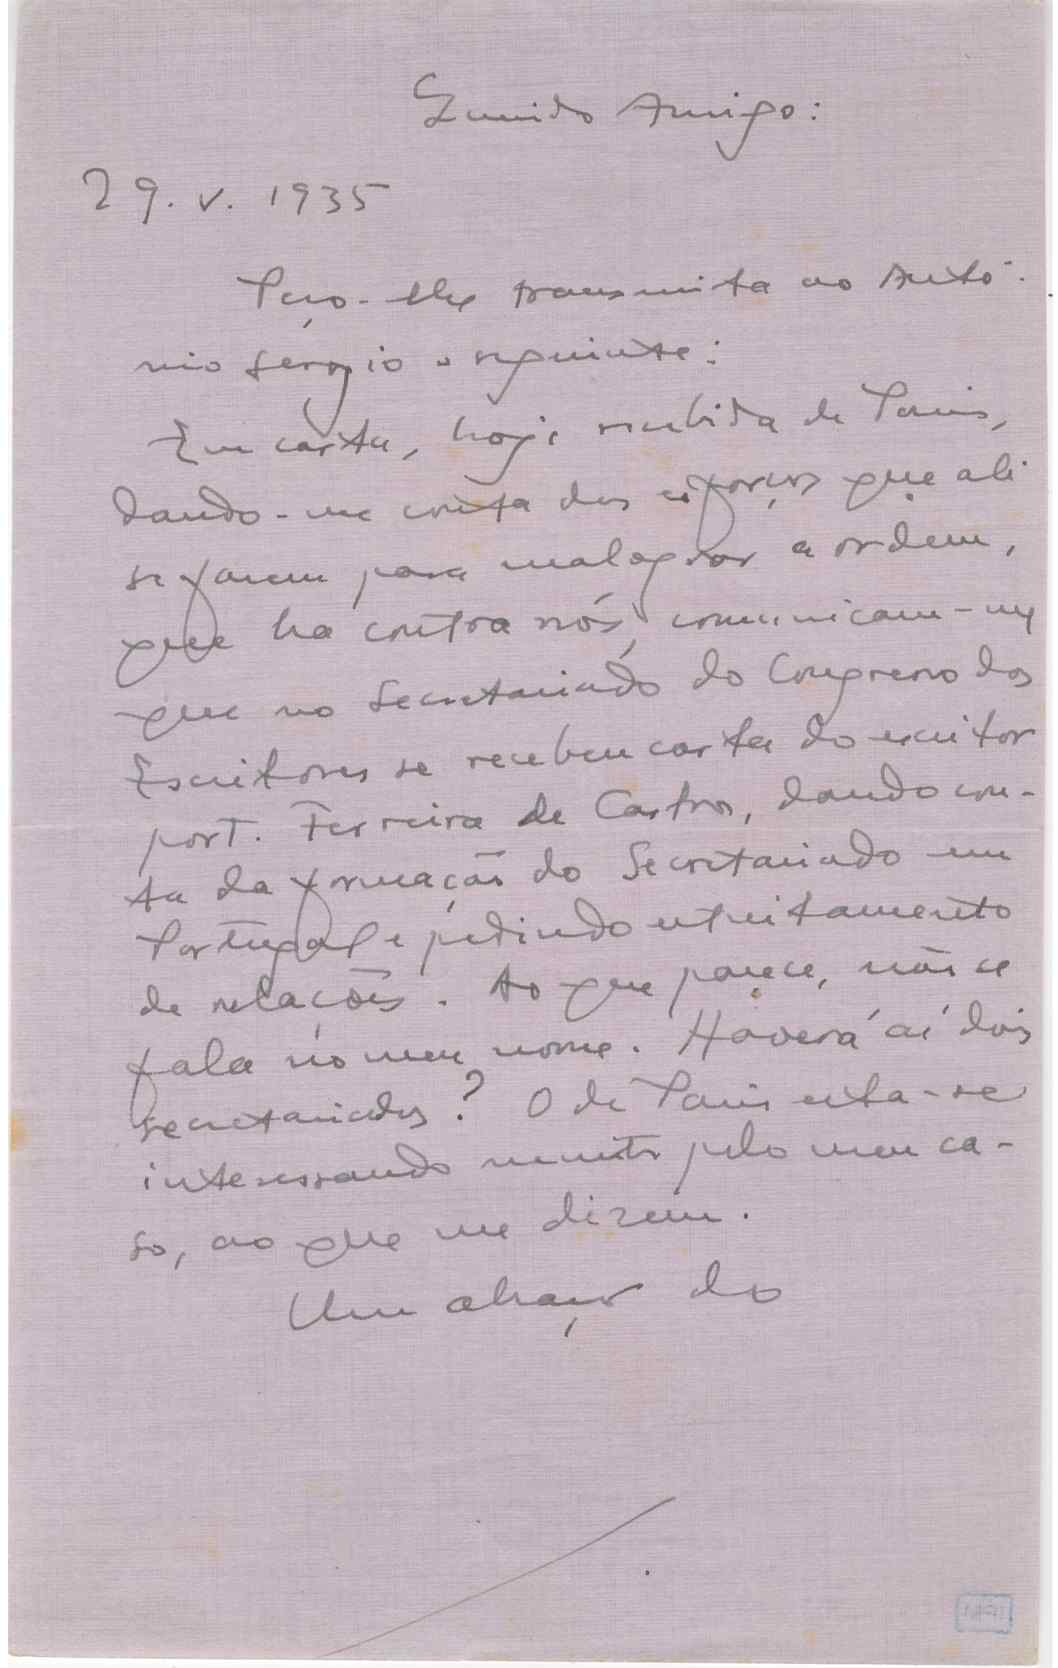 Querido Amigo:
29. V. 1935
Peço-lhe transmita ao Antó-
nio Sérgio o seguinte:
Em carta, hoje recebida de Paris,
dando-me conta dos esforços que ali
se fazem para malograr a ordem,
que ha contra nós, comunicam-me
que no Secretariado do Congresso dos
Escritores se recebeu carta do escritor
port. Ferreira de Castro, dando con-
ta da formação do Secretariado em
Portugal e pedindo estreitamento
de relações. Ao que parece, não se
fala no meu nome. Haverá aí dois
secretariados? O de Paris esta-se
interessando muito pelo meu ca-
so, ao que me dizem.
Um abraço do